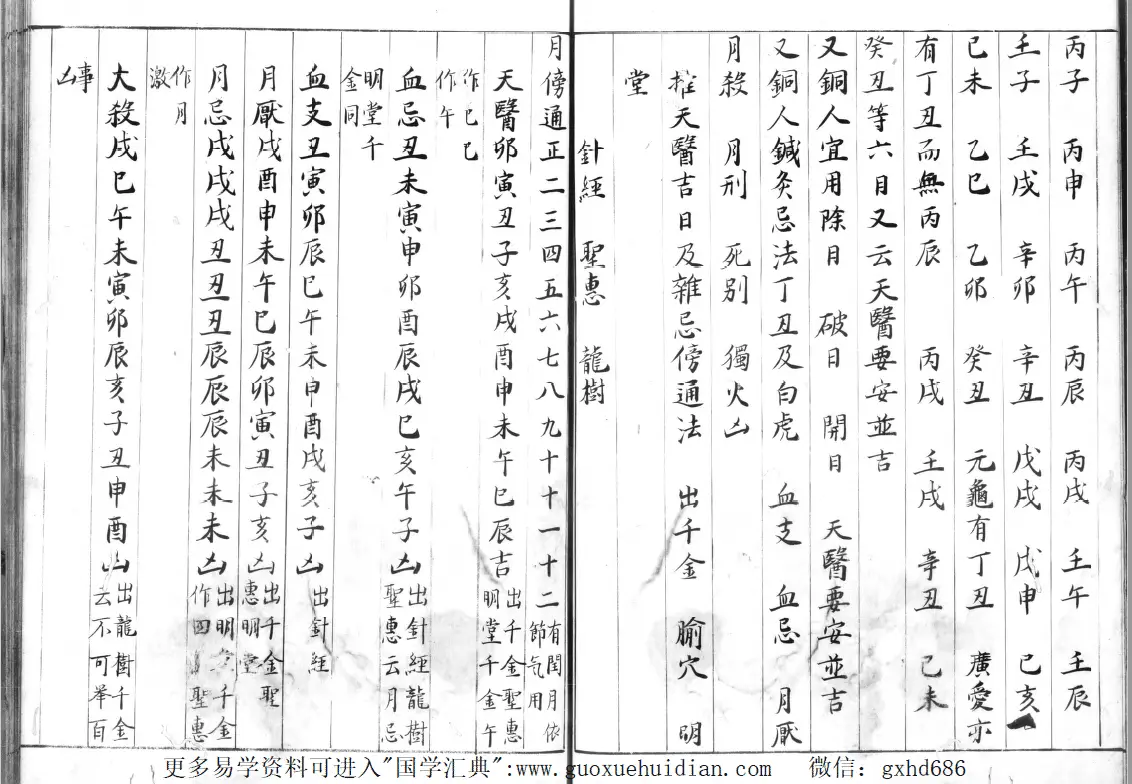 丙子　丙申　丙午　丙辰　丙戌　壬午　壬辰
壬子　壬戌　辛卯　辛丑　戊戌　戊申　己亥
己未　乙巳　乙卯　癸丑　元龜有丁丑　廣愛亦
有丁丑而無丙辰　丙戌　壬戌　辛丑　己未
癸丑等六日又云天醫要安並吉
又銅人宜用除日　破日　開日　天醫要安並吉
又銅人鍼灸忌法丁丑及白虎　血支　血忌　月厭
月殺　月刑　死別　獨火凶
推天醫吉日及雜忌傍通法　出千金　腧穴　明
堂
針經　聖惠　龍樹
月傍通正二三四五六七八九十十一十二有閏月依節氣用
天醫卯寅丑子亥戌酉申未午巳辰吉出千金聖惠明堂千金午
作巳巳作午
血忌丑未寅申卯酉辰戌巳亥午子凶出針經龍樹聖惠云月忌
明堂千金同
血支丑寅卯辰巳午未申酉戌亥子凶出針經
月厭戌酉申未午巳辰卯寅丑子亥凶出千金聖惠明堂
月忌戌戌戌丑丑丑辰辰辰未未未凶出明千金作四聖惠
作月激
大殺戌巳午未寅卯辰亥子丑申酉凶出龍樹千金云不可举百
事凶
更多易学资料可进入"国学汇典":www.guoxuehuidian.com　微信：gxhd686